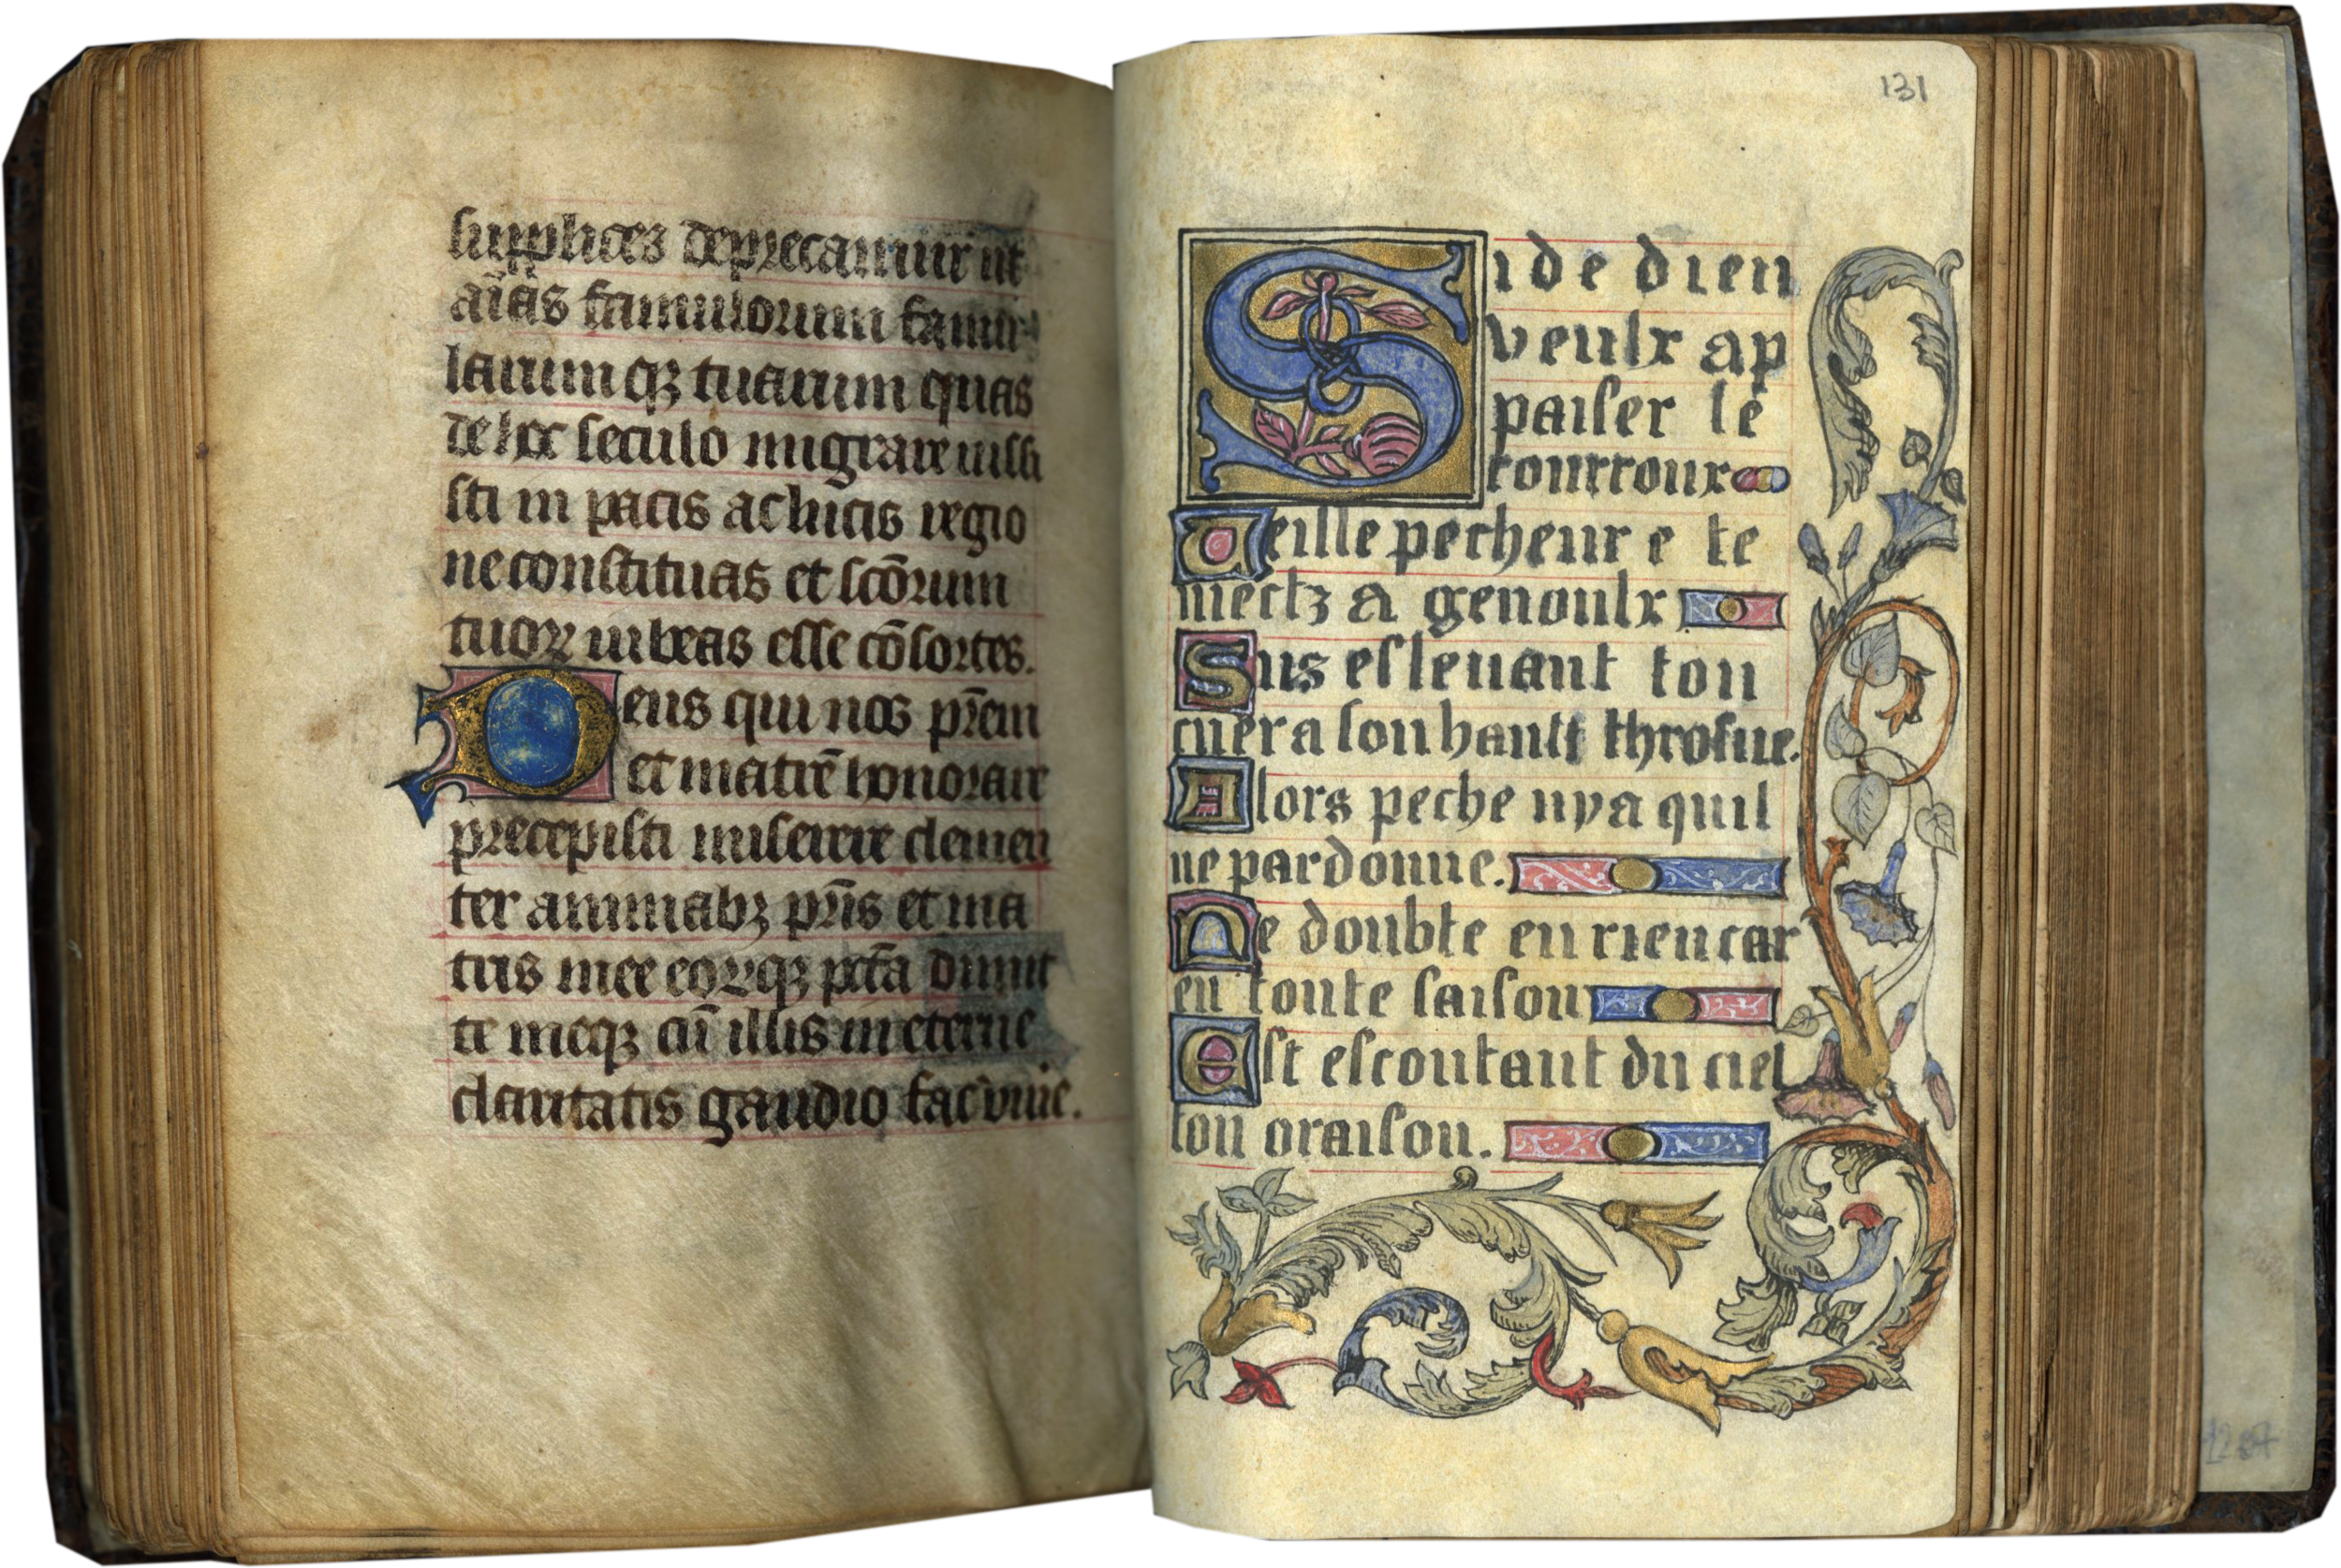 supplices deprecamur ut
aīas famulorum famu
larumqꝫ tuarum quas
de hoc seculo migrare iussi
sti in pacis ac lucis regio
ne constituas et scōrum
tuoꝝ iubeas esse cōsortes.
Deus qui nos pr̄em
et matrē honorare
precepisti miserere clemen
ter animabꝫ pr̄is et ma
tris mee eoꝝqꝫ pctā dimit
te meqꝫ cū illis in eterne
claritatis gaudio fac viuе.
131
Si de dieu
veulx ap
paiser le
courroux
Veille pecheur e te
mectz a genoulx
Sus esleuant ton
cuer a son hault throsne.
Alors peche ny a quil
ne pardonne.
Ne doubte en rien car
en toute saison
Est escoutant du ciel
ton oraison.